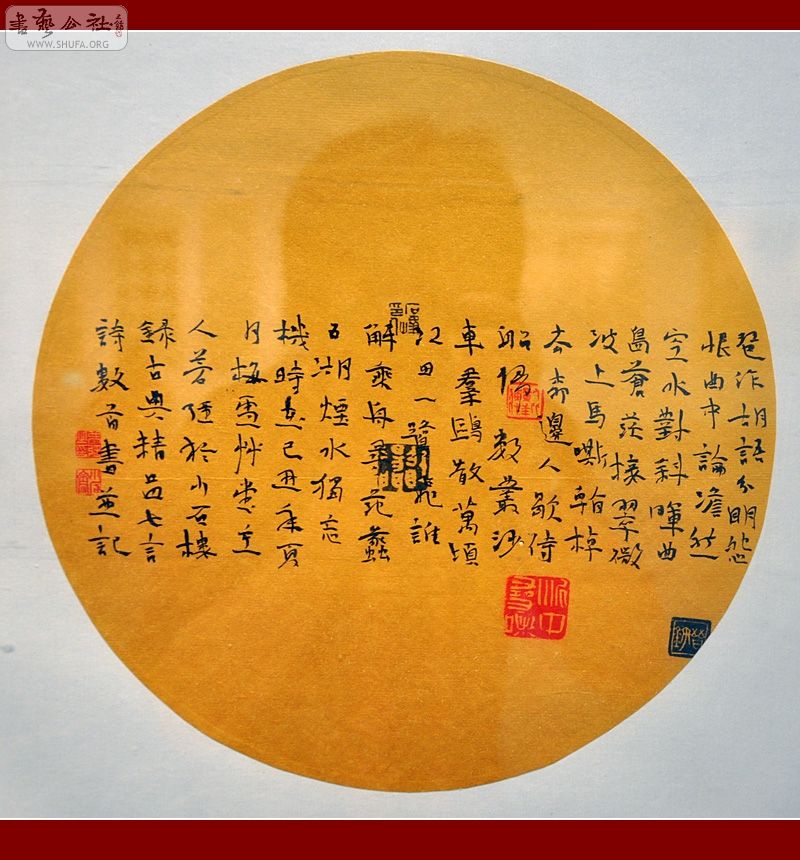 琶作胡語分明怨
恨曲中論澹然
空水對斜暉曲
島蒼茫接翠微
波上馬嘶看棹
去柳邊人歇待
船歸數叢沙
草羣鷗散萬頃
江田一鷺飛誰
解乘舟尋范蠡
五湖煙水獨忘
機時在己丑年夏
月梅雪艸堂主
人若於小石樓
錄古典精品七言
詩數首書並記
書藝公社
WWW.SHUFA.ORG